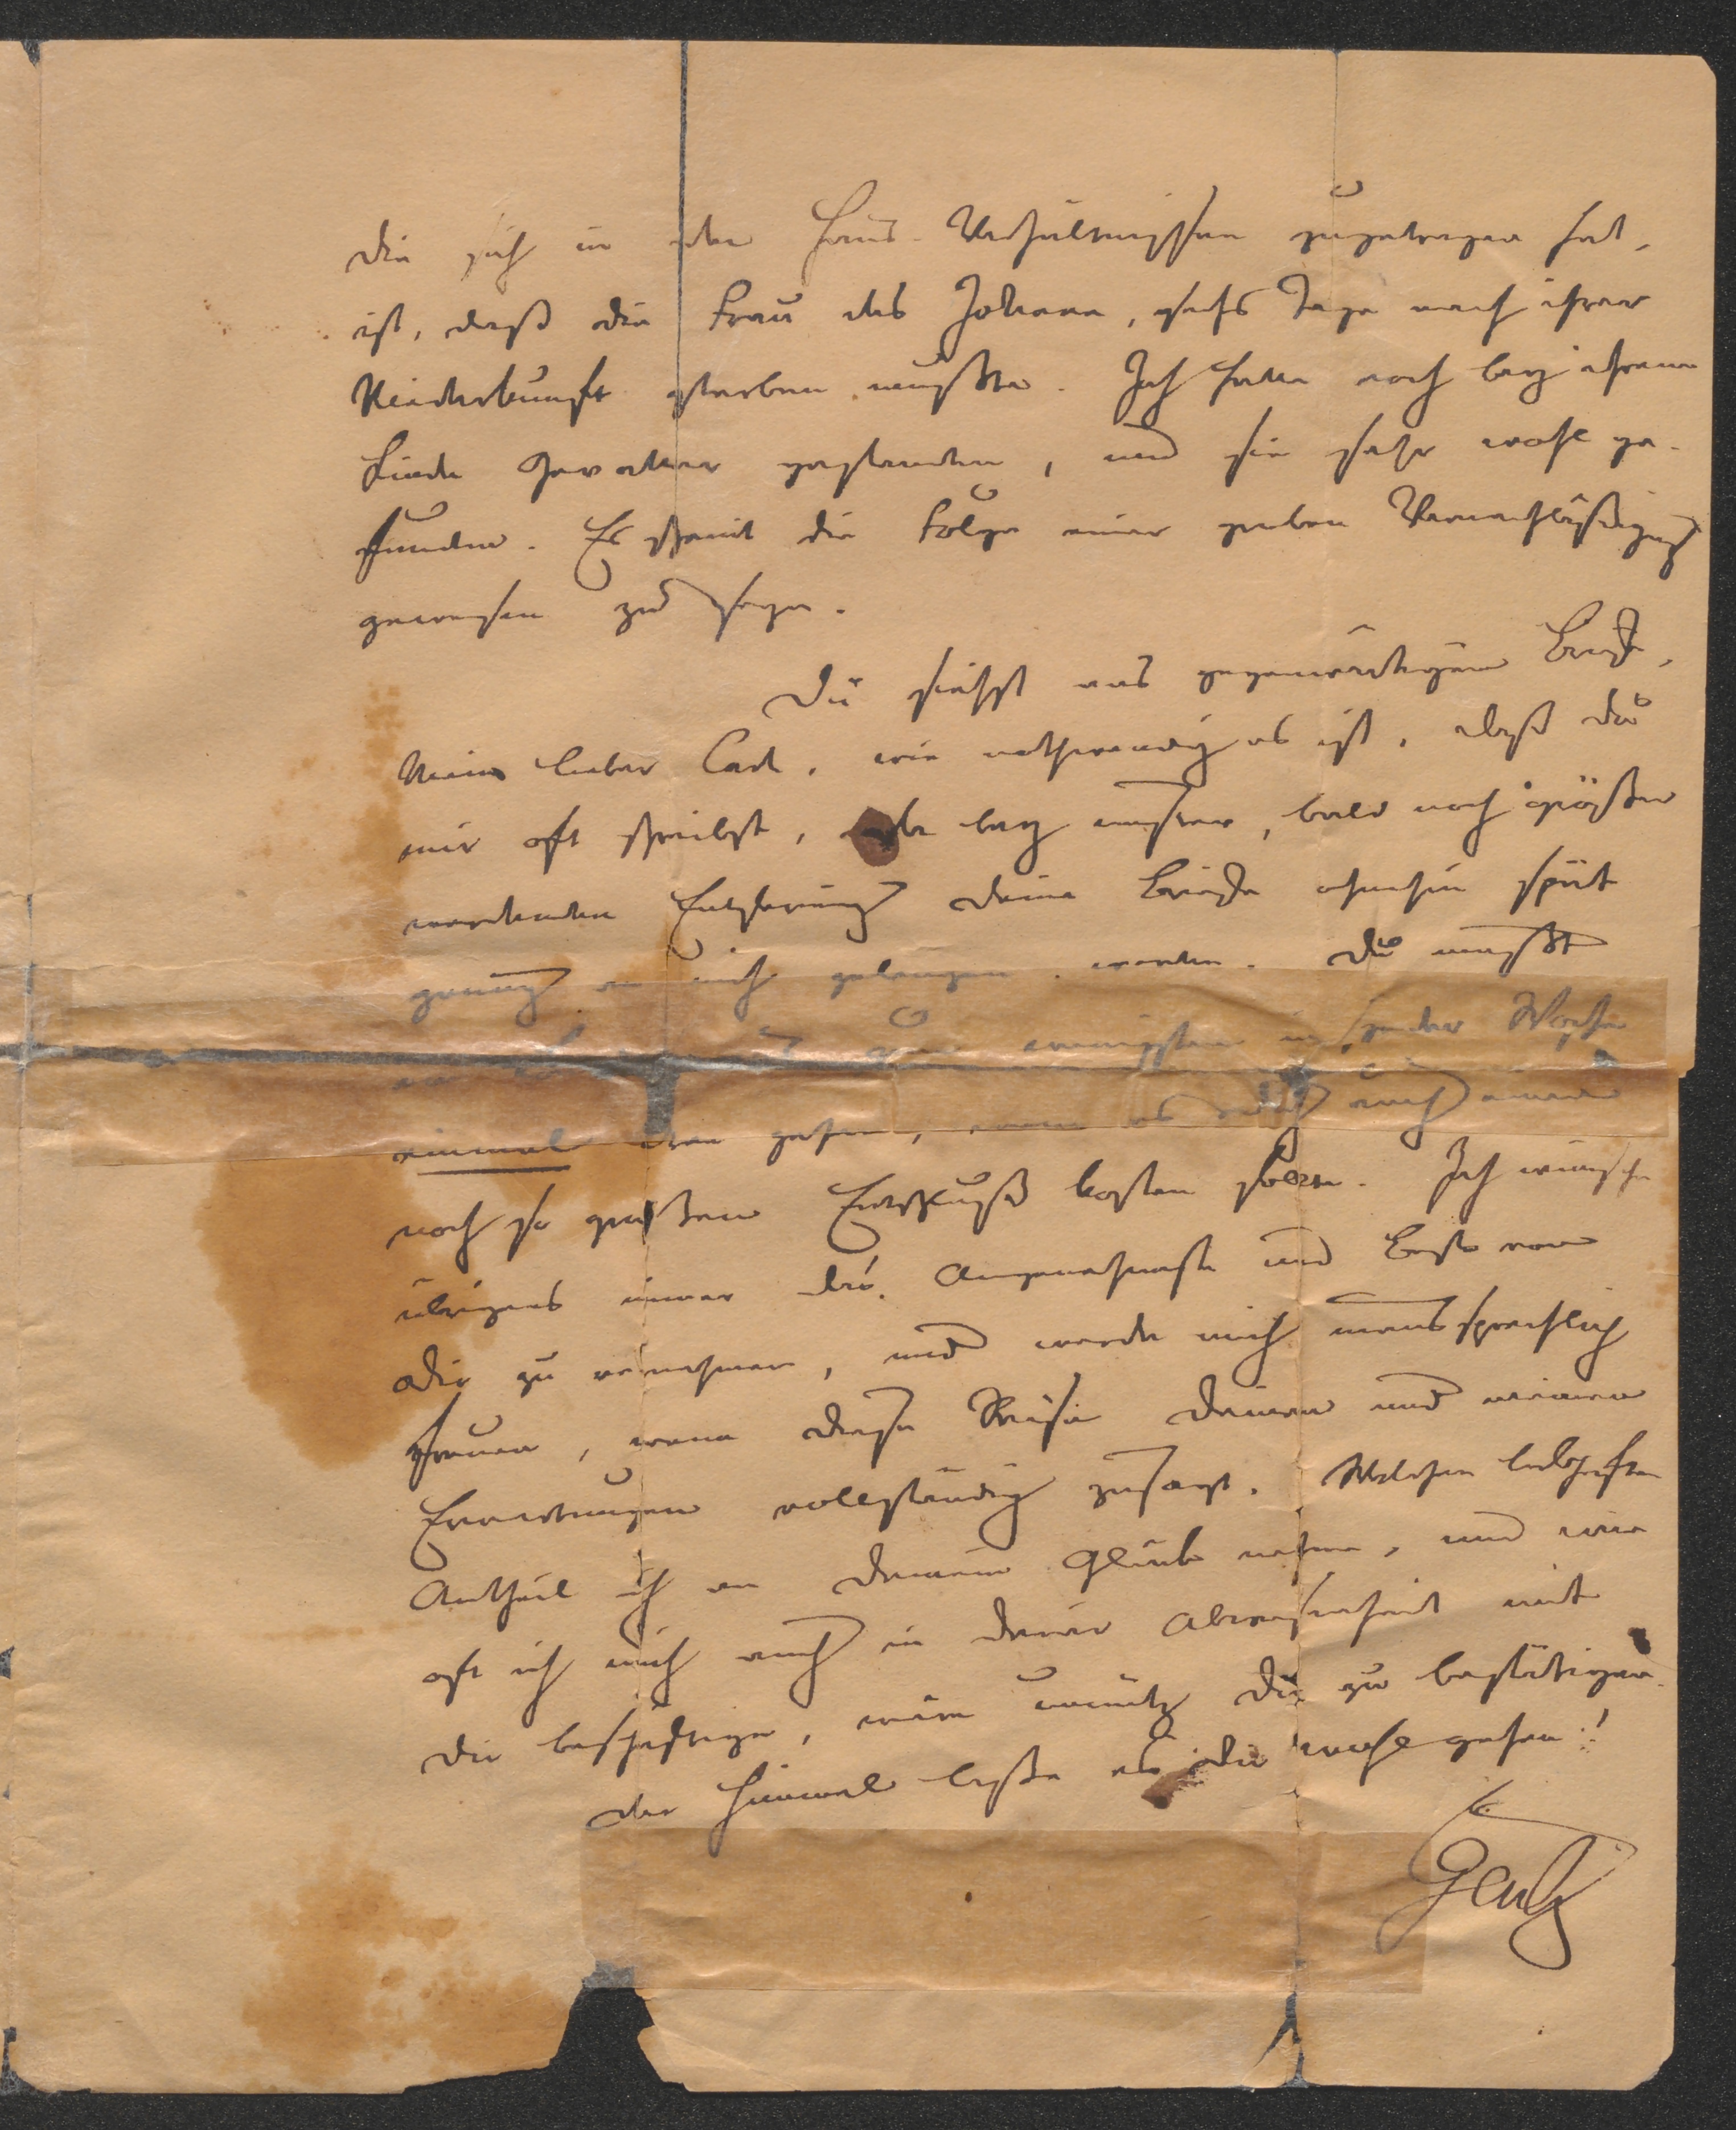 die sich in den Haus-Verhältnissen zugetragen hat,
ist, daß die Frau des Johann, sechs Tage nach ihrer
Niederkunft sterben mußte. Ich hatte noch bey ihrem
Kinde Gevatter gestanden, und sie sehr wohl ge-
funden. Es scheint die Folge einer groben Vernachläßigung
gewesen zu seyn.
Du siehst aus gegenwärtigem Briefe,
Mein lieber Carl, wie nothwendig es ist, daß du
mir oft schreibst, da bey unsrer, bald noch größer
werdenden Entfernung deine Briefe ohnehin spät
genug an mich gelangen werden. Du mußt
wenigstens in jeder Woche
einmal daran gehen, wenn es dich auch einen
noch so großen Entschluß kosten sollte. Ich wünsche
übrigens immer das Angenehmste und Beste von
dir zu vernehmen, und werde mich unaussprechlich
freuen, wenn diese Reise deinen und meinen
Erwartungen vollständig zusagt. Welchen lebhaften
Antheil ich an deinem Glück nehme, und wie
oft ich mich auch in deiner Abwesenheit mit
dir beschäftige, wäre unnütz dir zu bestätigen.
Der Himmel lasse es dir wohl gehen!
Gentz